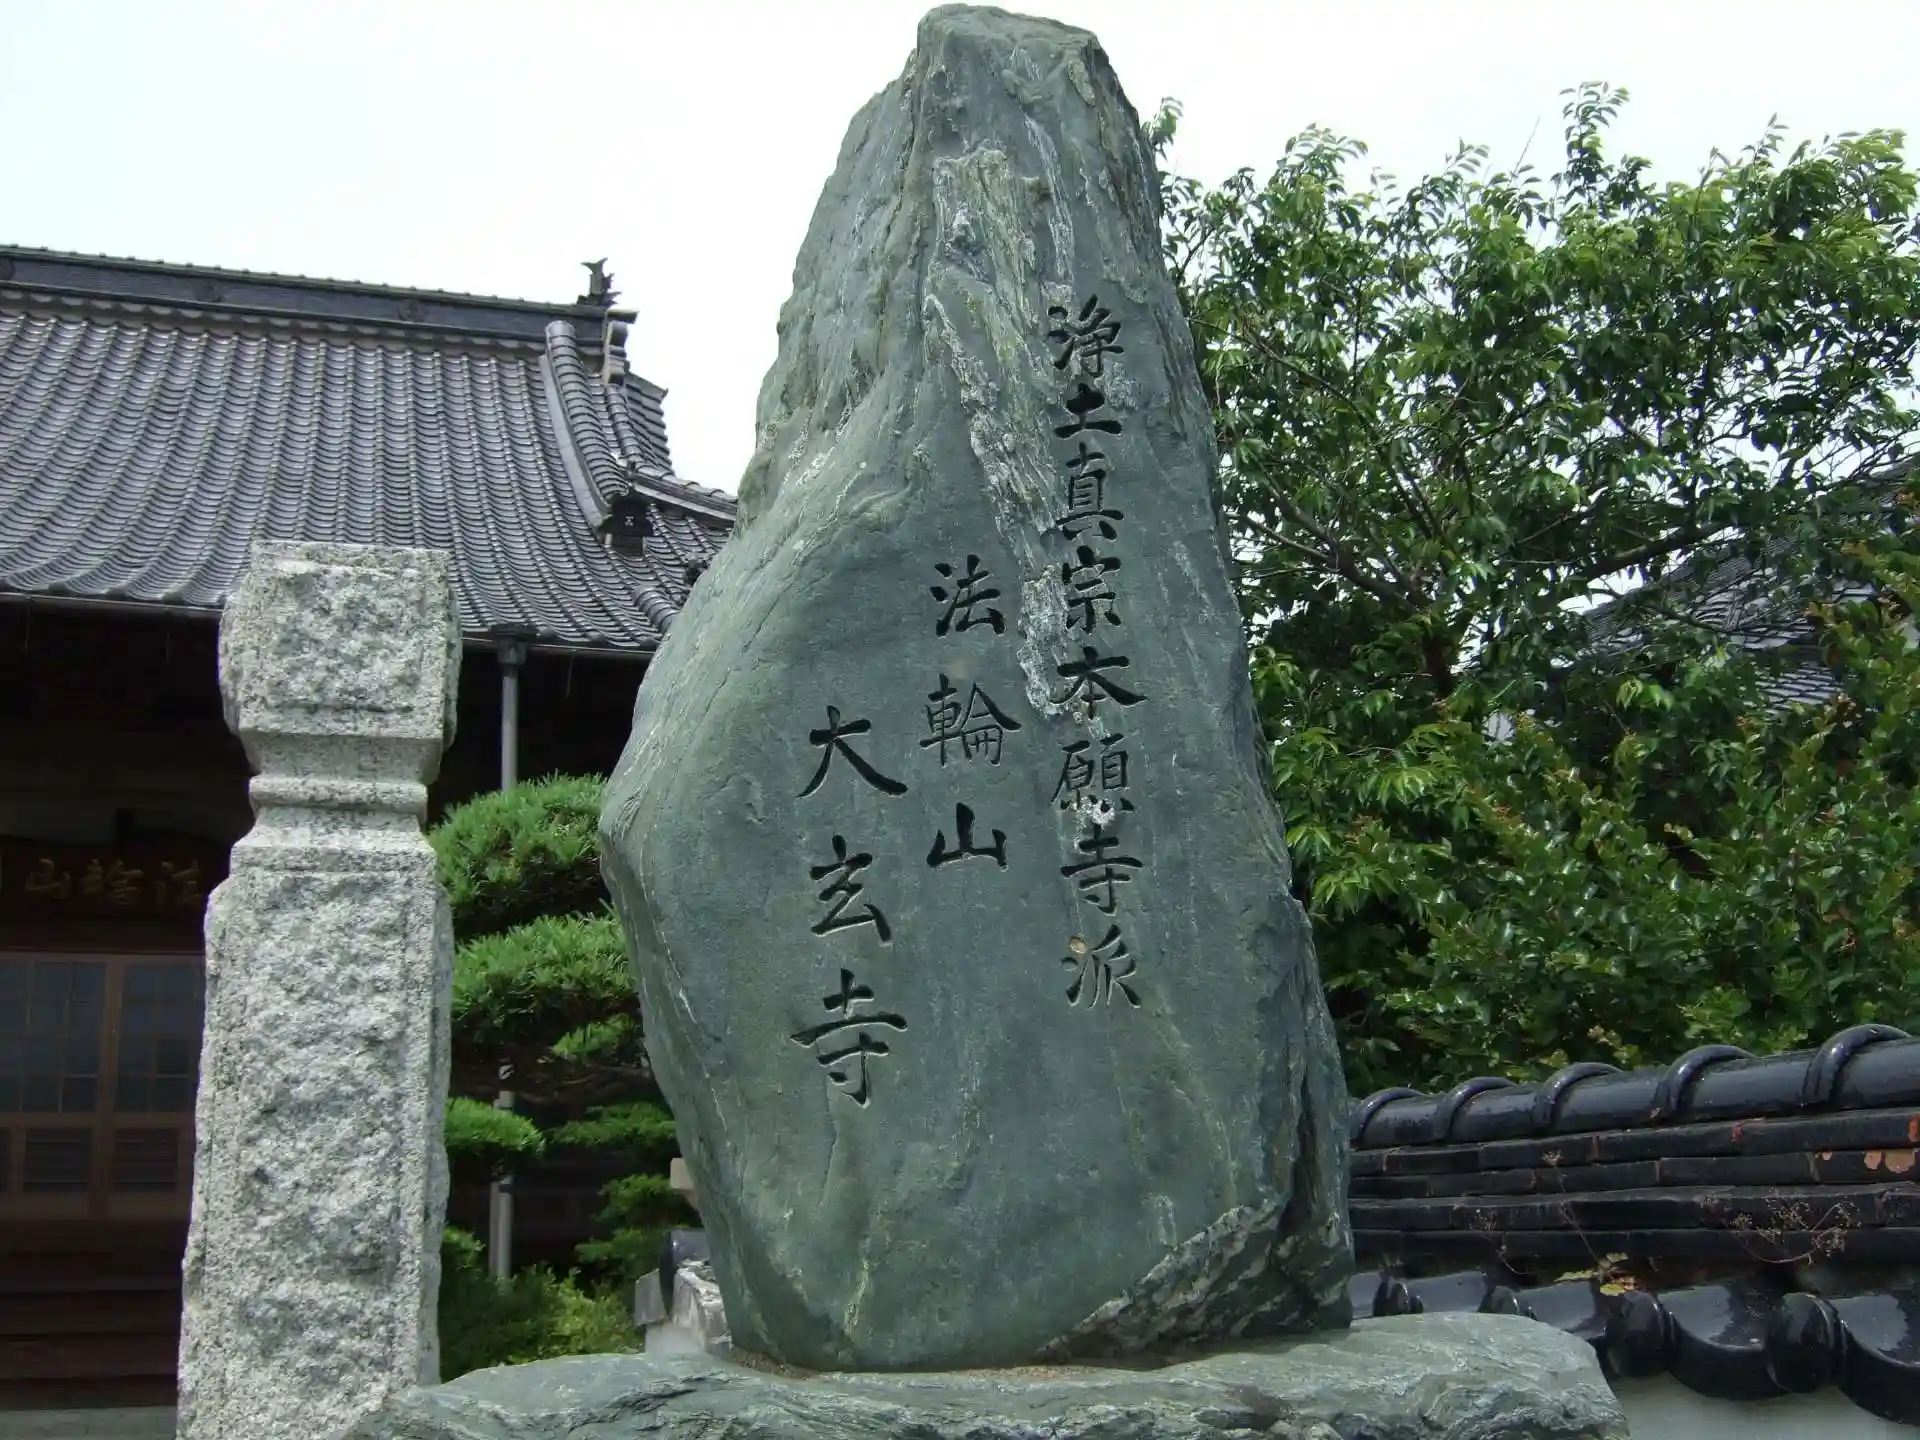 浄土真宗本願寺派
法輪山
大玄寺
法輪山